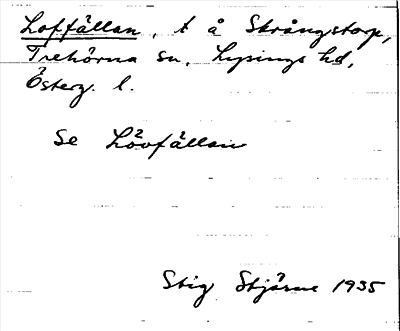 Loffällan, t å Skrångstorp,
Trehörna sn, Lysings hd,
Österg. l.
Se Lövfällan
Stig Stjärne 1935